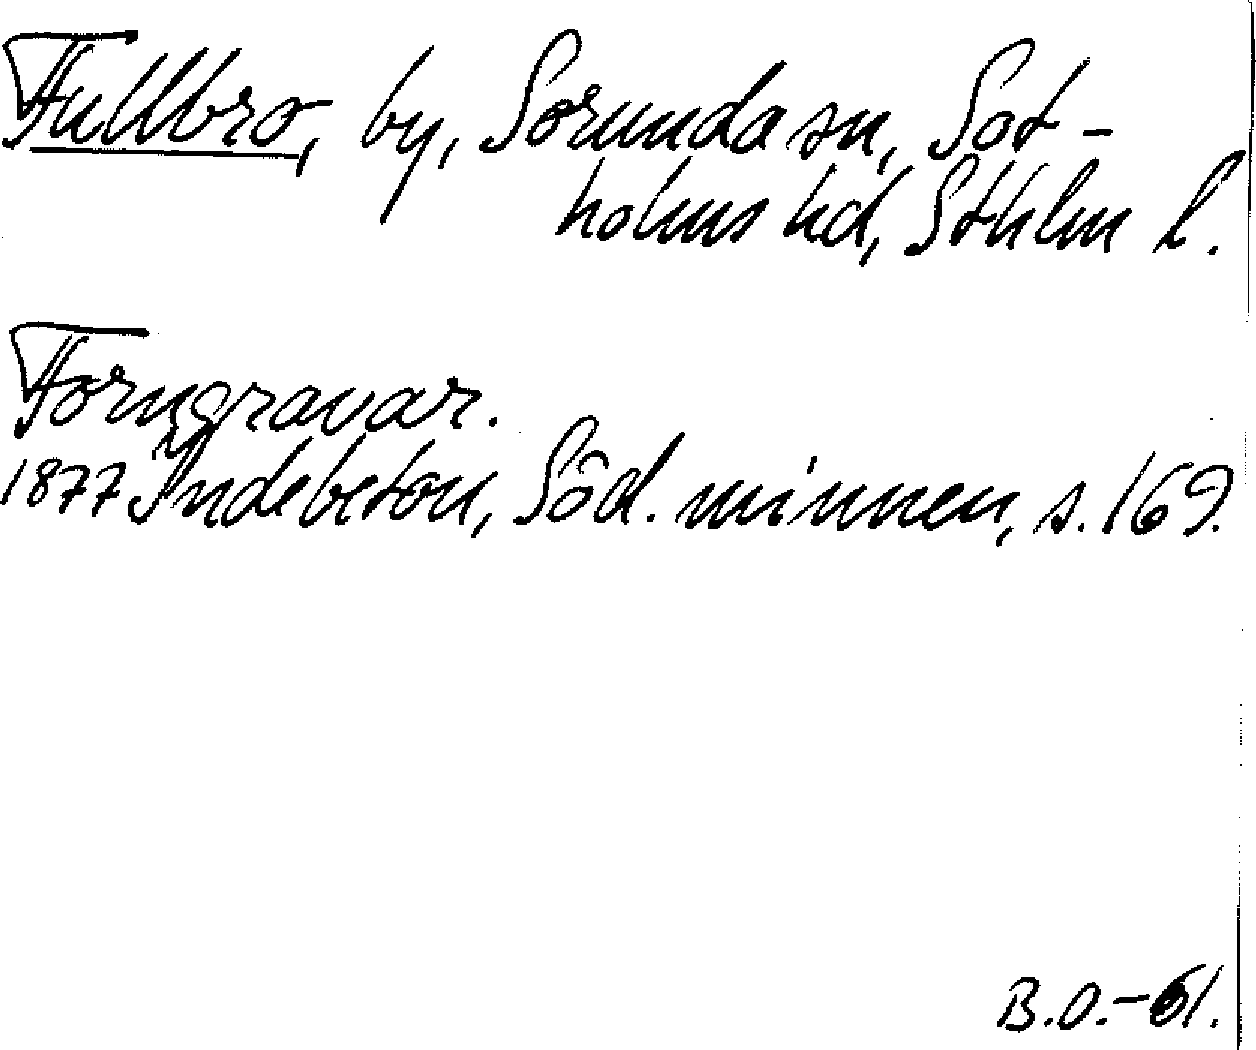 Fullbro, by, Sorunda sn, Sot-
holms hd, Sthlm l.
Forngravar.
1877 Indebetou, Söd. minnen, s. 169.
B.O.-61.